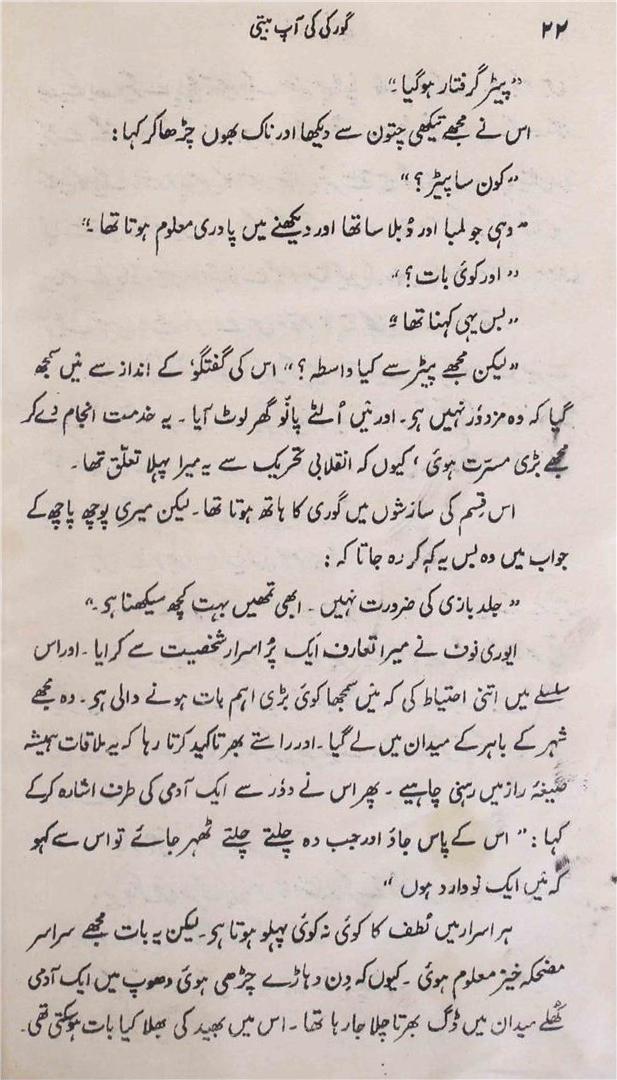 ۲۲ گورکی کی آپ بیتی
”پیٹر گرفتار ہوگیا۔“
اس نے مجھے تیکھی چتون سے دیکھا اور ناک بھوں چڑھا کر کہا:
”کون سا پیٹر؟“
”وہی جو لمبا اور دُبلا سا تھا اور دیکھنے میں پادری معلوم ہوتا تھا۔“
”اور کوئی بات؟“
”بس یہی کہنا تھا۔“
”لیکن مجھے پیٹر سے کیا واسطہ؟“ اس کی گفتگو کے انداز سے مَیں سمجھ
گیا کہ وہ مزدور نہیں ہی۔ اور مَیں اُلٹے پانو گھر لوٹ آیا۔ یہ خدمت انجام دے کر
مجھے بڑی مسرّت ہوئی، کیوں کہ انقلابی تحریک سے یہ میرا پہلا تعلّق تھا۔
اس قِسم کی سازشوں میں گوری کا ہاتھ ہوتا تھا۔ لیکن میری پوچھ پاچھ کے
جواب میں وہ بس یہ کہہ کر رہ جاتا کہ:
”جلد بازی کی ضرورت نہیں۔ ابھی تمھیں بہت کچھ سیکھنا ہی۔“
ایوری نوف نے میرا تعارف ایک پُر اسرار شخصیت سے کرایا۔ اور اس
سلسلے میں اتنی احتیاط کی کہ مَیں سمجھا کوئی بڑی اہم بات ہونے والی ہی۔ وہ مجھے
شہر کے باہر کے میدان میں لے گیا۔ اور راستے بھر تاکید کرتا رہا کہ یہ ملاقات ہمیشہ
صیغۂ راز میں رہنی چاہیے۔ پھر اس نے دوٗر سے ایک آدمی کی طرف اشارہ کرکے
کہا: ”اس کے پاس جاؤ اور جب وہ چلتے چلتے ٹھہر جائے تو اس سے کہو
کہ مَیں ایک نووارد ہوں“
ہر اسرار میں لُطف کا کوئی نہ کوئی پہلو ہوتا ہی۔ لیکن یہ بات مجھے سراسر
مضحکہ خیز معلوم ہوئی۔ کیوں کہ دِن دہاڑے چڑھی ہوئی دھوپ میں ایک آدمی
کھُلے میدان میں ڈگ بھرتا چلا جا رہا تھا۔ اس میں بھید کی بھلا کیا بات ہوسکتی تھی۔